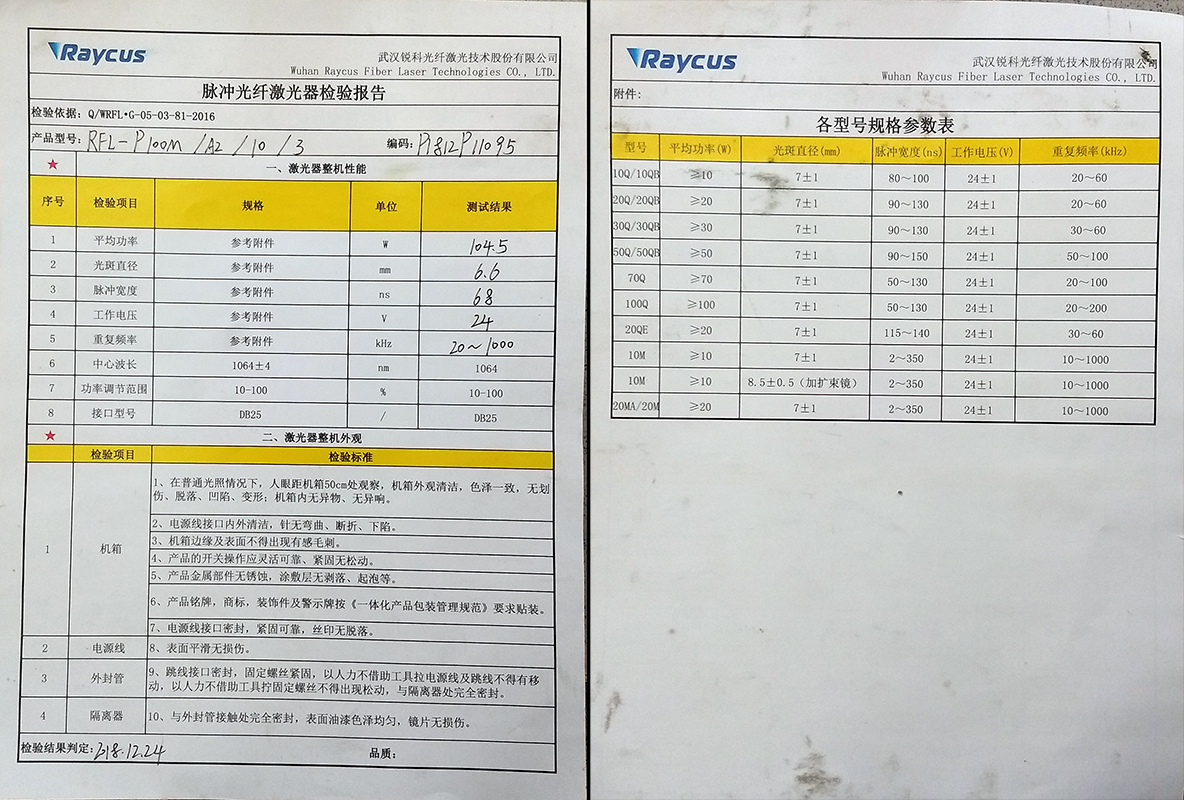 Raycus
武汉锐科光纤激光技术股份有限公司
Wuhan Raycus Fiber Laser Technologies CO., LTD.
脉冲光纤激光器检验报告
检验依据: Q/WRFL•G-05-03-81-2016
产品型号: RFL-P100M /A2 /10 /3 编码: P1812P11095
★ 一、激光器整机性能
序号 检验项目 规格 单位 测试结果
1 平均功率 参考附件 W 104.5
2 光斑直径 参考附件 mm 6.6
3 脉冲宽度 参考附件 ns 68
4 工作电压 参考附件 V 24
5 重复频率 参考附件 kHz 20~1000
6 中心波长 1064±4 nm 1064
7 功率调节范围 10-100 % 10-100
8 接口型号 DB25 / DB25
★ 二、激光器整机外观
检验项目 检验标准
1 机箱
1、在普通光照情况下，人眼距机箱50cm处观察，机箱外观清洁，色泽一致，无划
伤、脱落、凹陷、变形；机箱内无异物、无异响。
2、电源线接口内外清洁，针无弯曲、断折、下陷。
3、机箱边缘及表面不得出现有感毛刺。
4、产品的开关操作应灵活可靠、紧固无松动。
5、产品金属部件无锈蚀，涂敷层无剥落、起泡等。
6、产品铭牌，商标，装饰件及警示牌按《一体化产品包装管理规范》要求贴装。
7、电源线接口密封，紧固可靠，丝印无脱落。
2 电源线 8、表面平滑无损伤。
3 外封管 9、跳线接口密封，固定螺丝紧固，以人力不借助工具拉电源线及跳线不得有移
动，以人力不借助工具拧固定螺丝不得出现松动，与隔离器处完全密封。
4 隔离器 10、与外封管接触处完全密封，表面油漆色泽均匀，镜片无损伤。
检验结果判定: 2018.12.24 品质:
Raycus
武汉锐科光纤激光技术股份有限公司
Wuhan Raycus Fiber Laser Technologies CO., LTD.
附件:
各型号规格参数表
型号 平均功率(W) 光斑直径(mm) 脉冲宽度(ns) 工作电压(V) 重复频率(kHz)
10Q/10QB ≥10 7±1 80～100 24±1 20～60
20Q/20QB ≥20 7±1 90～130 24±1 20～60
30Q/30QB ≥30 7±1 90～130 24±1 30～60
50Q/50QB ≥50 7±1 90～150 24±1 50～100
70Q ≥70 7±1 50～130 24±1 20～100
100Q ≥100 7±1 50～130 24±1 20～200
20QE ≥20 7±1 115～140 24±1 30～60
10M ≥10 7±1 2～350 24±1 10～1000
10M ≥10 8.5±0.5（加扩束镜） 2～350 24±1 10～1000
20MA/20M ≥20 7±1 2～350 24±1 10～1000